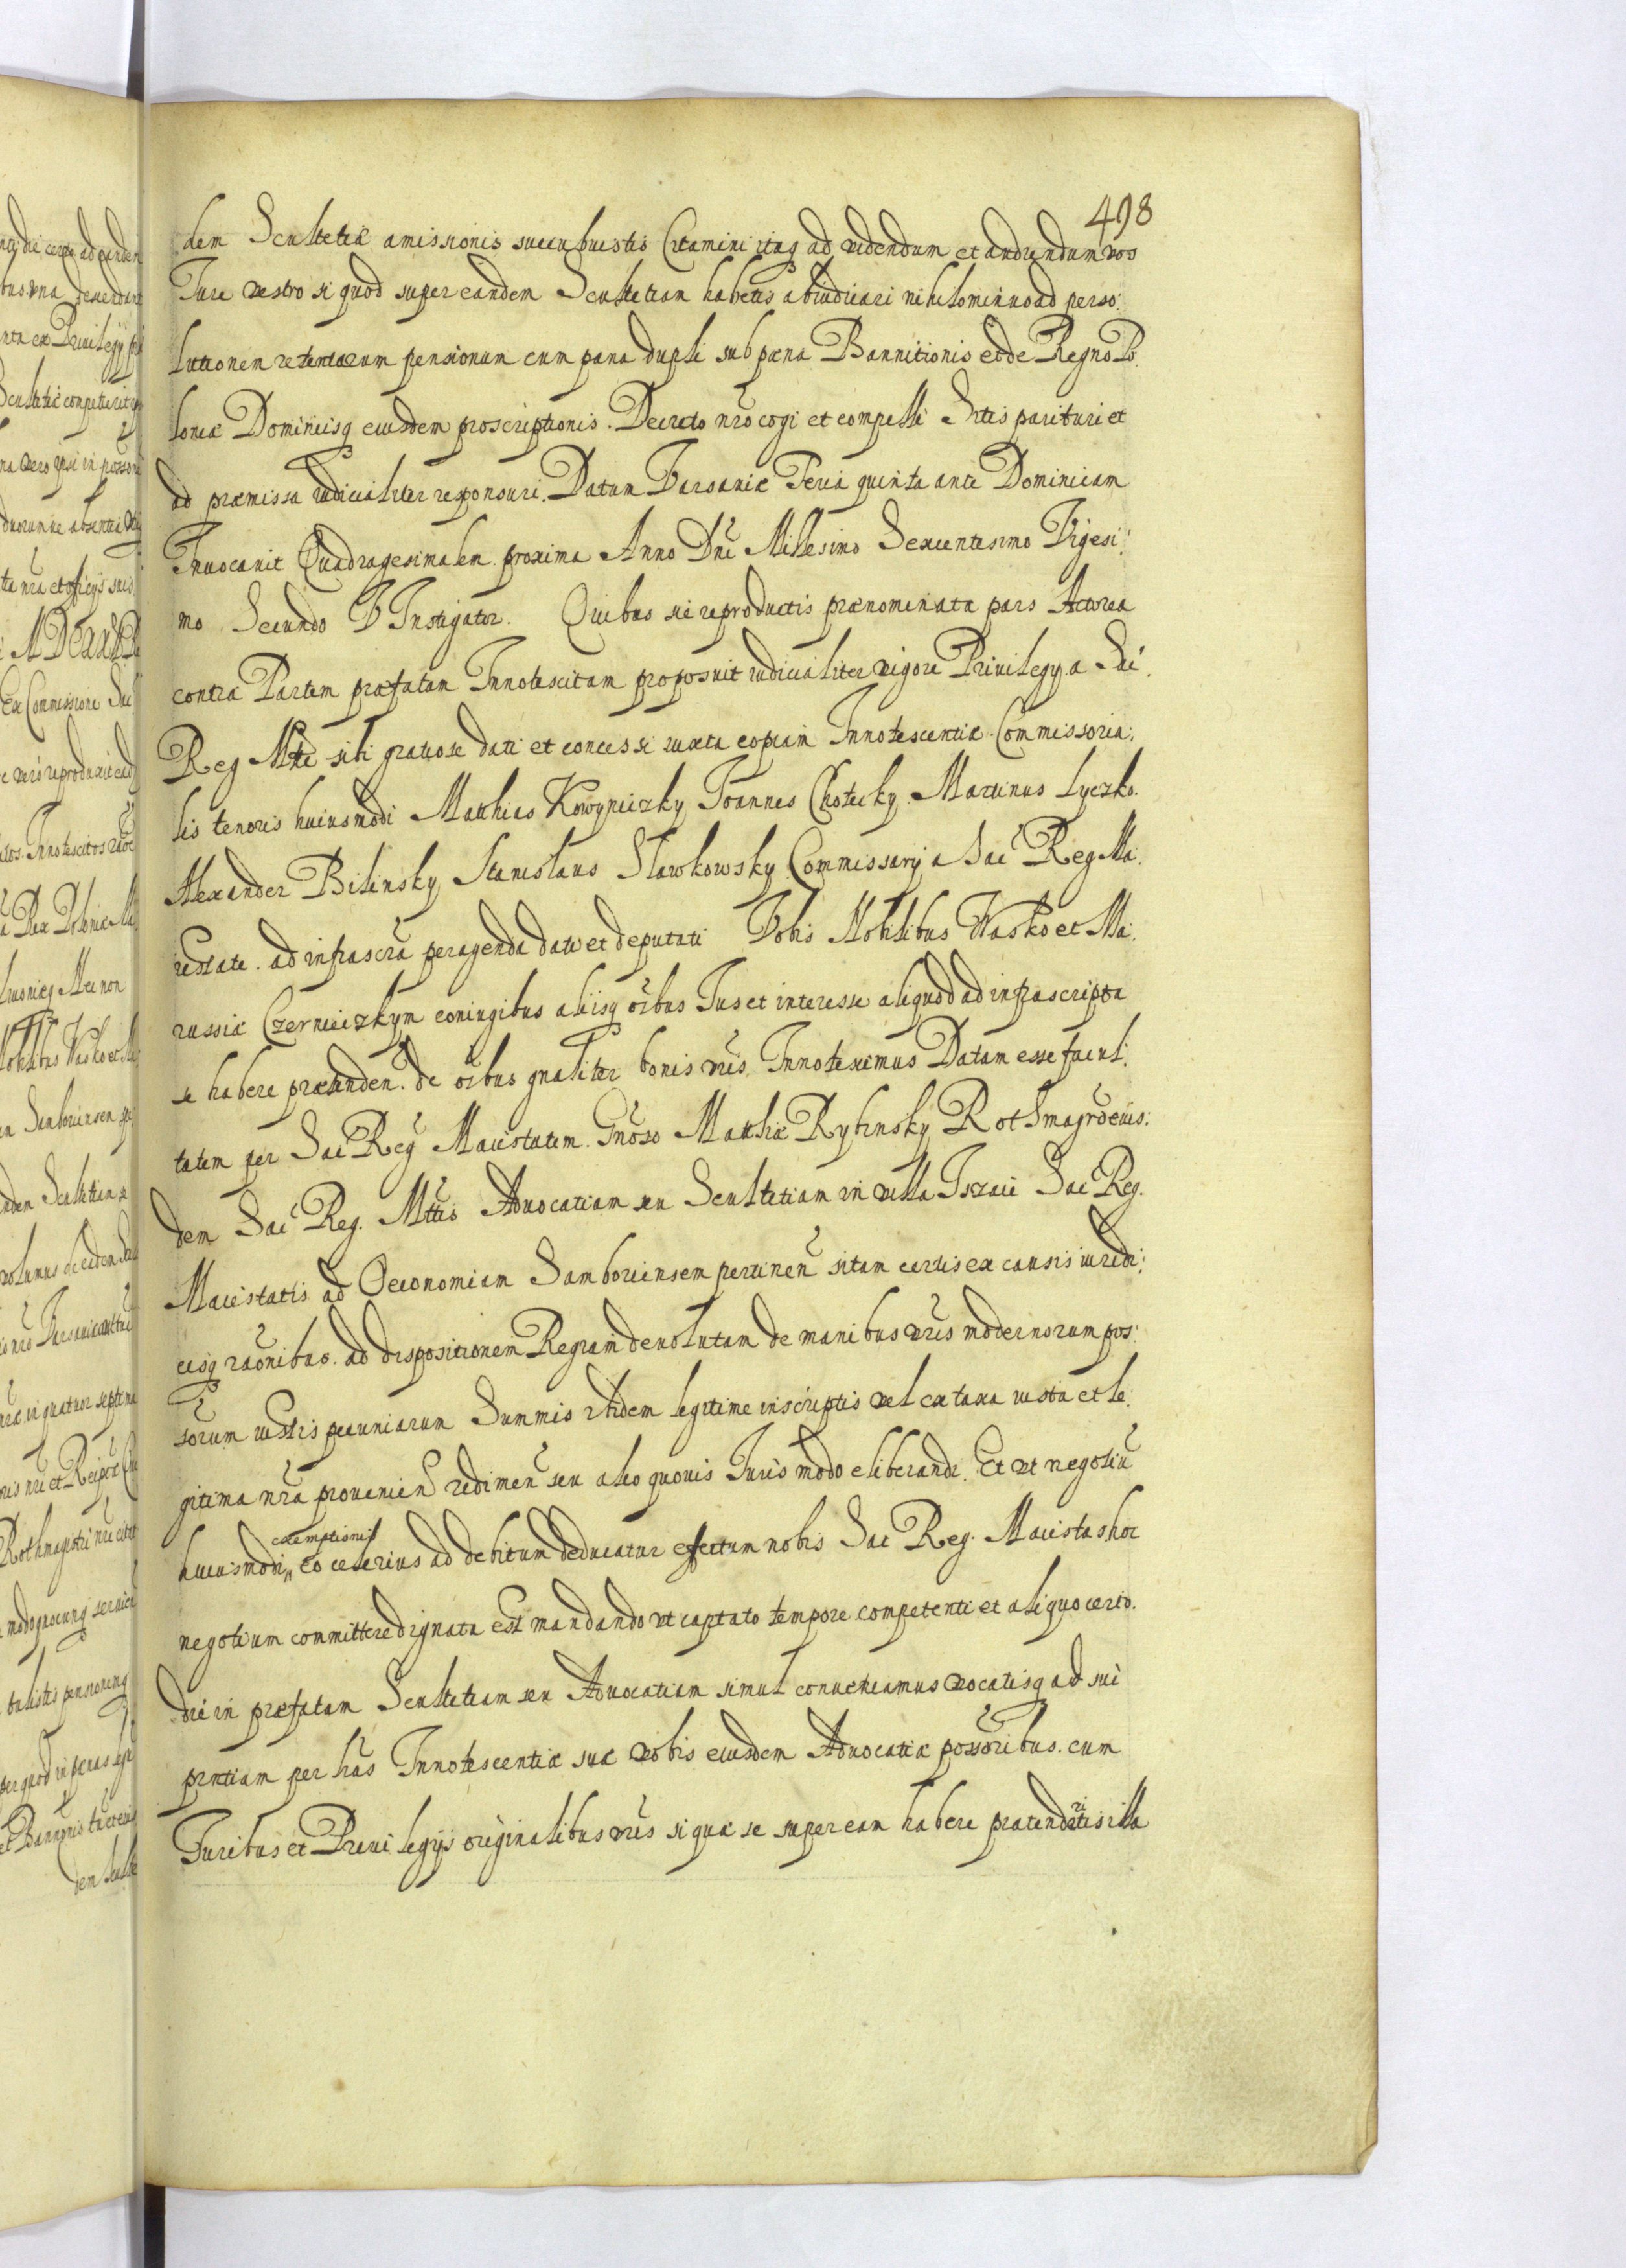 498
dem Scultetiæ amissionis succubuistis Citamini itaq ad videndum et audiendum vos
Iure vestro si quod super eandem Scultetiam habetis abiudicari nihilominus ad perso:
lutionem retentarum pensionum cum pæna dupli sub pæna Bannitionis et de Regno Po
loniæ Dominiisq eiusdem proscriptionis. Decreto nro cogi et compelli Sitis parituri et
ad præmissa iudicialiter responsuri. Datum Varsauiæ Feria quinta ante Dominicam
Inuocauit Quadragesimalem proxima Anno Dni Millesimo Sexcentesimo Vigesi:
mo Secundo V Instigator. Quibus sic reproductis prænominata pars Actorea
contra Partem præfatam Innotescitam proposuit iudicialiter vigore Priuilegy a Sac
Reg Mtte sibi gratiose dati et concessi iuxta copiam Innotescentiæ Commissoria:
lis tenoris huiusmodi Matthias Kowyniczky Ioannes Chotecky Martinus Lyczko.
Alexander Bilinsky Stanislaus Slawkowsky Commissarij a Sac Reg Ma:
iestate. ad infrascra peragenda dati et deputati Vobis Nobilibus Wasko et Ma:
russiæ Czerniczkym coniugibus aliisq oibus Ius et interesse aliquod ad infrascripta
se habere prætenden. de oibus gnaliter bonis vris Innotescimus Datam esse facul:
tatem per Sac Reg Maiestatem. Gnoso Matthiæ Rybinsky Rothmagro eius:
dem Sac Reg. Mttis Aduocatiam seu Scultetiam in villa Iszaie Sac Reg.
Maiestatis ad Oeconomiam Samboriensem pertinen sitam certis ex causis iuridi:
cisq raonibus. ad dispositionem Regiam deuolutam de manibus vris modernorum pos:
sorum iustis pecuniarum Summis ibidem legitime inscriptis vel ex taxa iusta et le:
gitima nra prouenien redimen seu alio quouis Iuris modo eliberandi. Et ut negotiu
huiusmodi exemptionis eo celerius ad debitum deducatur effectum nobis Sac Reg. Maiestas hoc
negotium committere dignata est mandando ut captato tempore competenti et aliquo certo.
die in præfatam Scultetiam seu Aduocatiam simul conueniamus vocatisq ad sui
præntiam per has Innotescentiæ suæ vobis eiusdem Aduocatiæ possoribus. cum
Iuribus et Priuilegijs originalibus vris si quæ se super eam habere prætenderitis illa